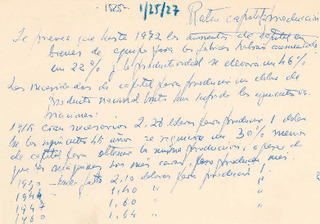 1525.- 1/25/27 Ratio capital/producción
Se preve que hasta 1972 los aumentos de capital en
bienes de equipo para las fabricas habrán aumentado
un 22% y la productividad se elevara un 46%
Las necesidades de capital para producir un dolar de
producto nacional bruto han sufrido las siguientes
variaciones:
eran necesarios 2.20 dolares para producir 1 dolar
En los siguientes 45 años se requiere un 30% menos
de capital para obtener la misma producción, a pesar de
que las maquinas son más caras, pero producen más.
2,10 dolares para producir 1 "
1,60 "
1,60 "
1,54 "